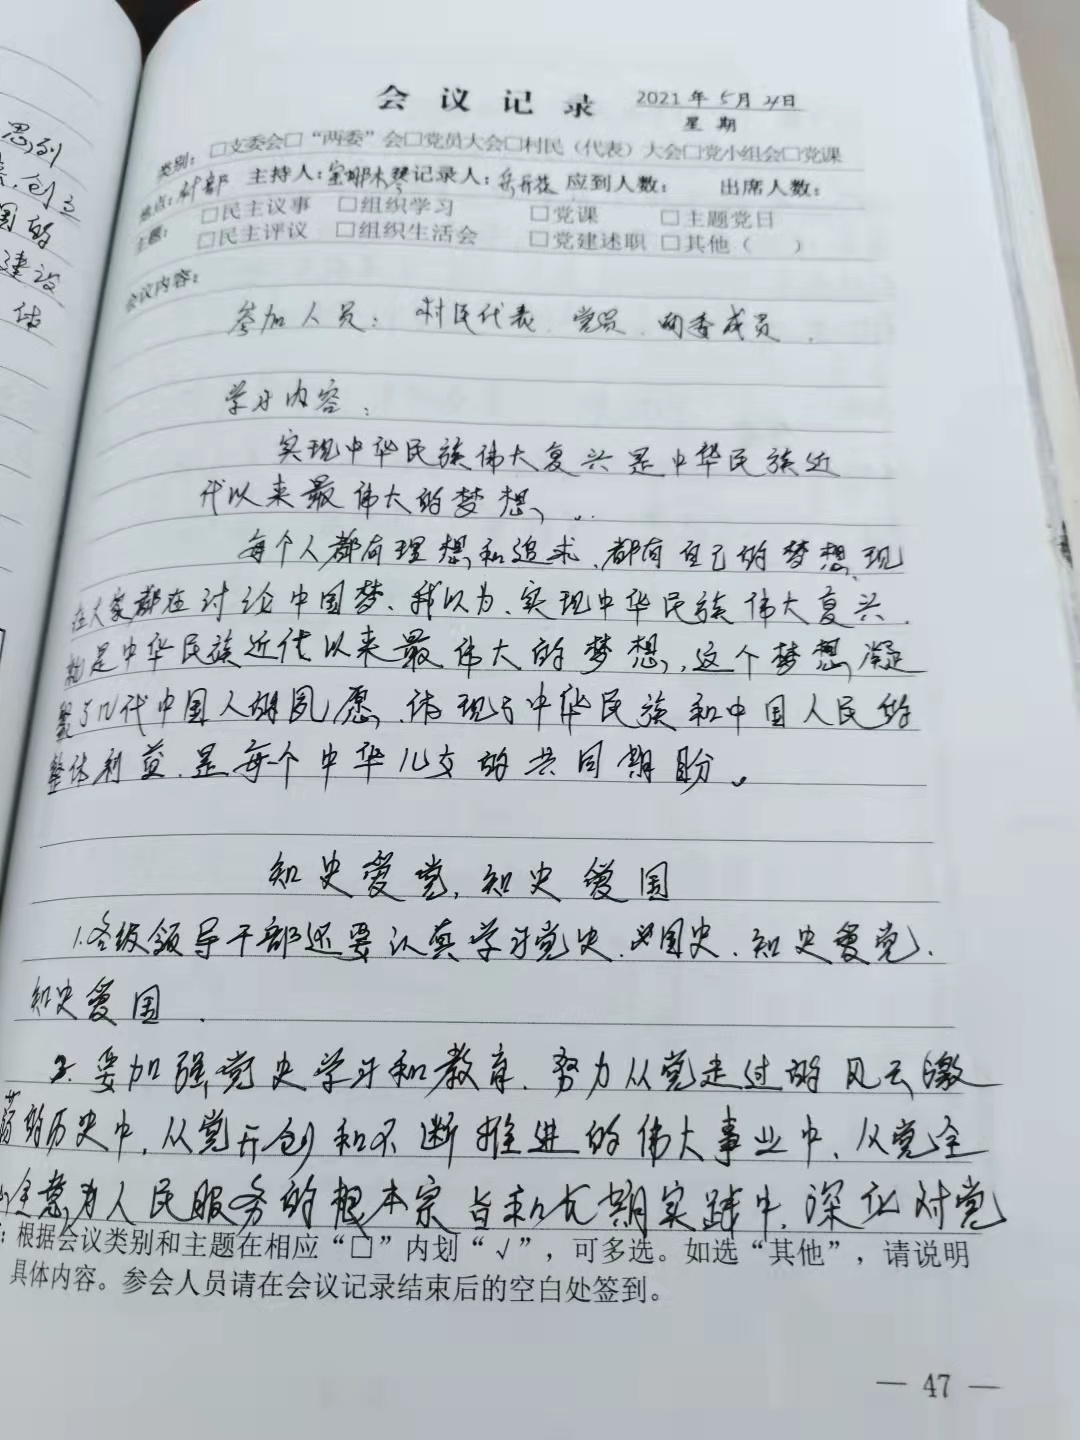 思列
创立
国的
建设
会议记录 2021年5月21日
星期
类别：□支委会□“两委”会□党员大会□村民（代表）大会□党小组会□党课
地点：村部 主持人：宝那木琴 记录人： 应到人数： 出席人数：
主题： □民主议事 □组织学习 □党课 □主题党日
□民主评议 □组织生活会 □党建述职 □其他（ ）
会议内容：
参加人员：村民代表、党员、两委成员.
学习内容：
实现中华民族伟大复兴是中华民族近
代以来最伟大的梦想、..
每个人都有理想和追求、都有自己的梦想、现
在大家都在讨论中国梦、我以为、实现中华民族伟大复兴、
就是中华民族近代以来最伟大的梦想、这个梦想、凝
聚了几代中国人的夙愿、体现了中华民族和中国人民的
整体利益、是每个中华儿女的共同期盼。
知史爱党，知史爱国
1.各级领导干部还要认真学习党史、国史、知史爱党、
知史爱国.
2.要加强党史学习和教育、努力从党走过的风云激
荡的历史中，从党开创和不断推进的伟大事业中、从党全
心全意为人民服务的根本宗旨和长期实践中、深化对党
：根据会议类别和主题在相应“□”内划“√”，可多选。如选“其他”，请说明
具体内容。参会人员请在会议记录结束后的空白处签到。
— 47 —